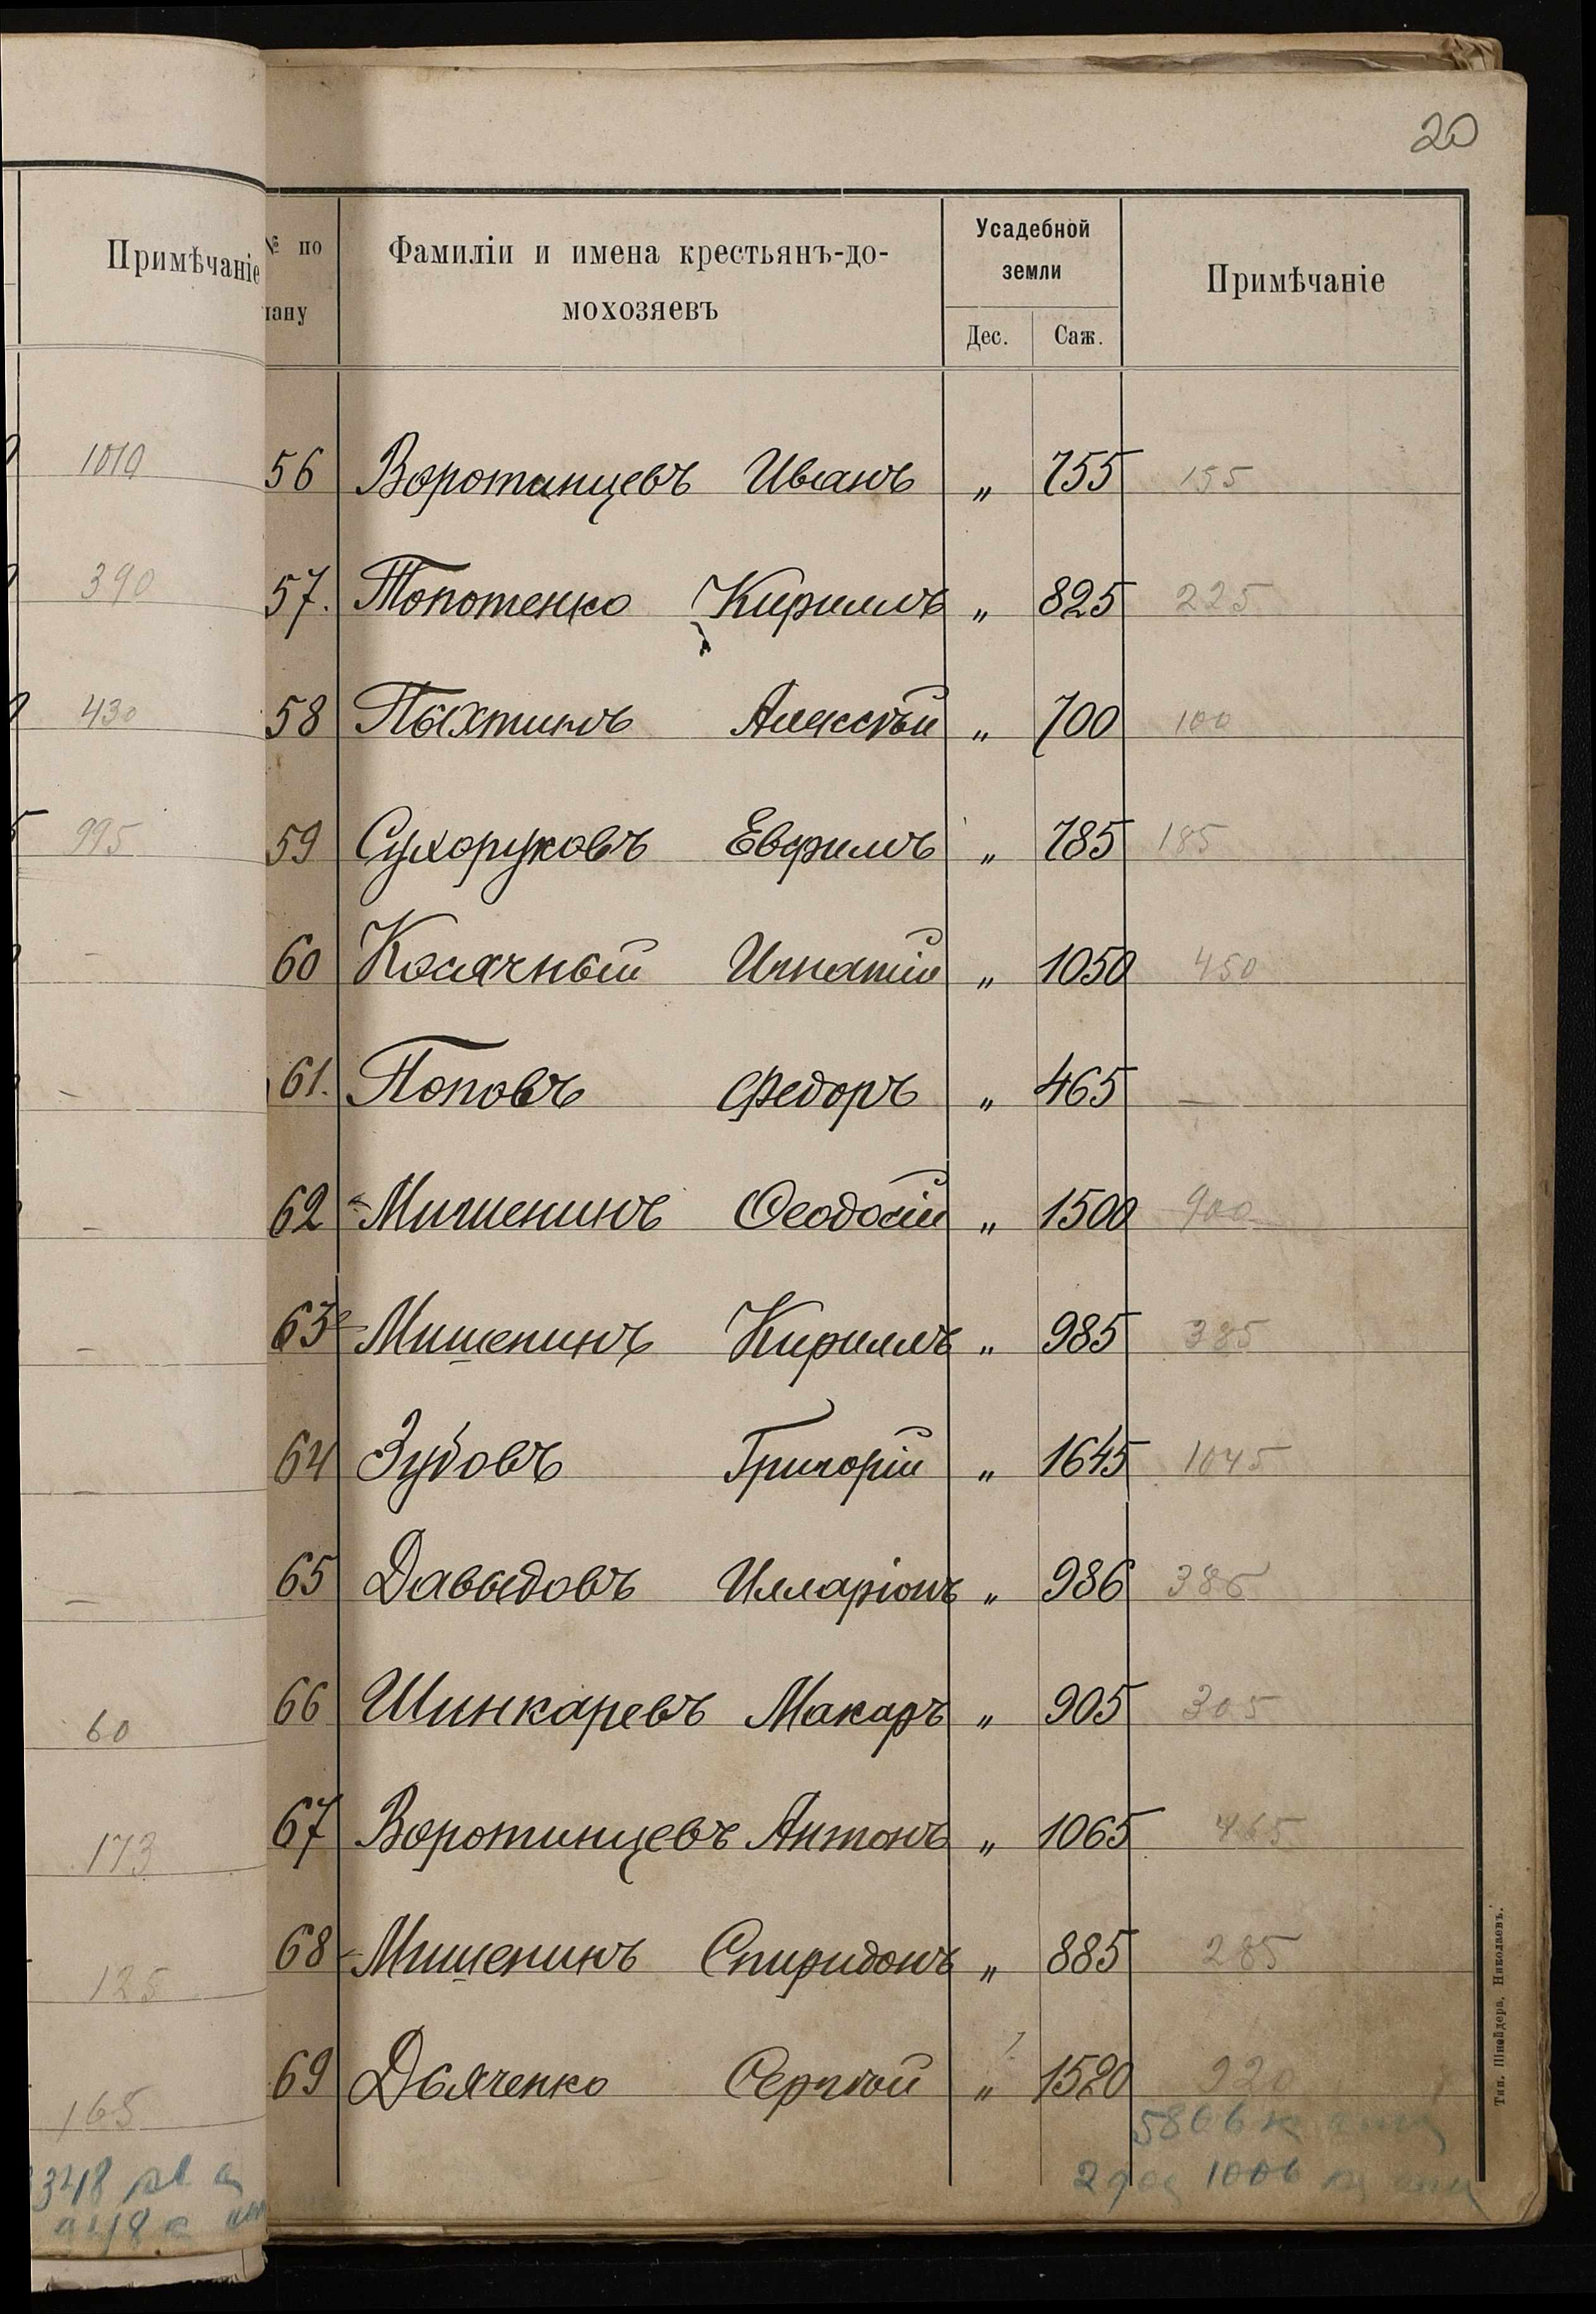 20
Примѣчаніе
1010
390
430
995
60
173
125
165
№ по
Фамиліи и имена крестьянъ-до-
мохозяевъ
Усадебной
земли
Дес.
Саж.
Примѣчаніе
56 Воротинцевъ Иванъ „ 755 155
57. Топотенко Кириллъ „ 825 225
58 Пыхтинъ Алексѣй „ 700 100
59 Сухоруковъ Евфимъ „ 785 185
60 Игнатій „ 1050 450
61. Поповъ Федоръ „ 465 —
62 Мишенинъ Ѳеодосій „ 1500 900
63 Мишенинъ Кириллъ „ 985 385
64 Зубовъ Григорій „ 1645 1045
65 Давыдовъ Илларіонъ „ 986 386
66 Шинкаревъ Макаръ „ 905 305
67 Воротинцевъ Антонъ „ 1065 465
68 Мишенинъ Спиридонъ „ 885 285
69 Дьяченко Сергѣй „ 1520 920
Тип. Шнейдера, Николаевъ.